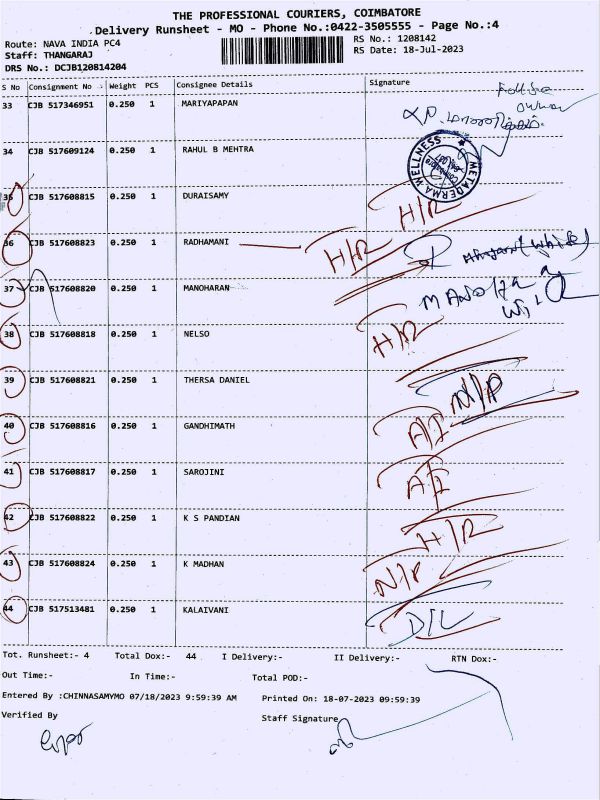 THE PROFESSIONAL COURIERS, COIMBATORE
Delivery Runsheet - MO - Phone No.:0422-3505555 - Page No.:4
Route: NAVA INDIA PC4
Staff: THANGARAJ
DRS No.: DCJB120814204
RS No.: 1208142
RS Date: 18-Jul-2023
S No Consignment No Weight PCS Consignee Details Signature
33 CJB 517346951 0.250 1 MARIYAPAPAN
34 CJB 517609124 0.250 1 RAHUL B MEHTRA
METADERMA WELLNESS
35 CJB 517608815 0.250 1 DURAISAMY H/R
36 CJB 517608823 0.250 1 RADHAMANI H/R
37 CJB 517608820 0.250 1 MANOHARAN
38 CJB 517608818 0.250 1 NELSO H/R
39 CJB 517608821 0.250 1 THERSA DANIEL N/P
40 CJB 517608816 0.250 1 GANDHIMATH A/I
41 CJB 517608817 0.250 1 SAROJINI A/I
42 CJB 517608822 0.250 1 K S PANDIAN H/R
43 CJB 517608824 0.250 1 K MADHAN N/P
44 CJB 517513481 0.250 1 KALAIVANI D/L
Tot. Runsheet:- 4 Total Dox:- 44 I Delivery:- II Delivery:- RTN Dox:-
Out Time:- In Time:- Total POD:-
Entered By :CHINNASAMYMO 07/18/2023 9:59:39 AM Printed On: 18-07-2023 09:59:39
Verified By
Staff Signature